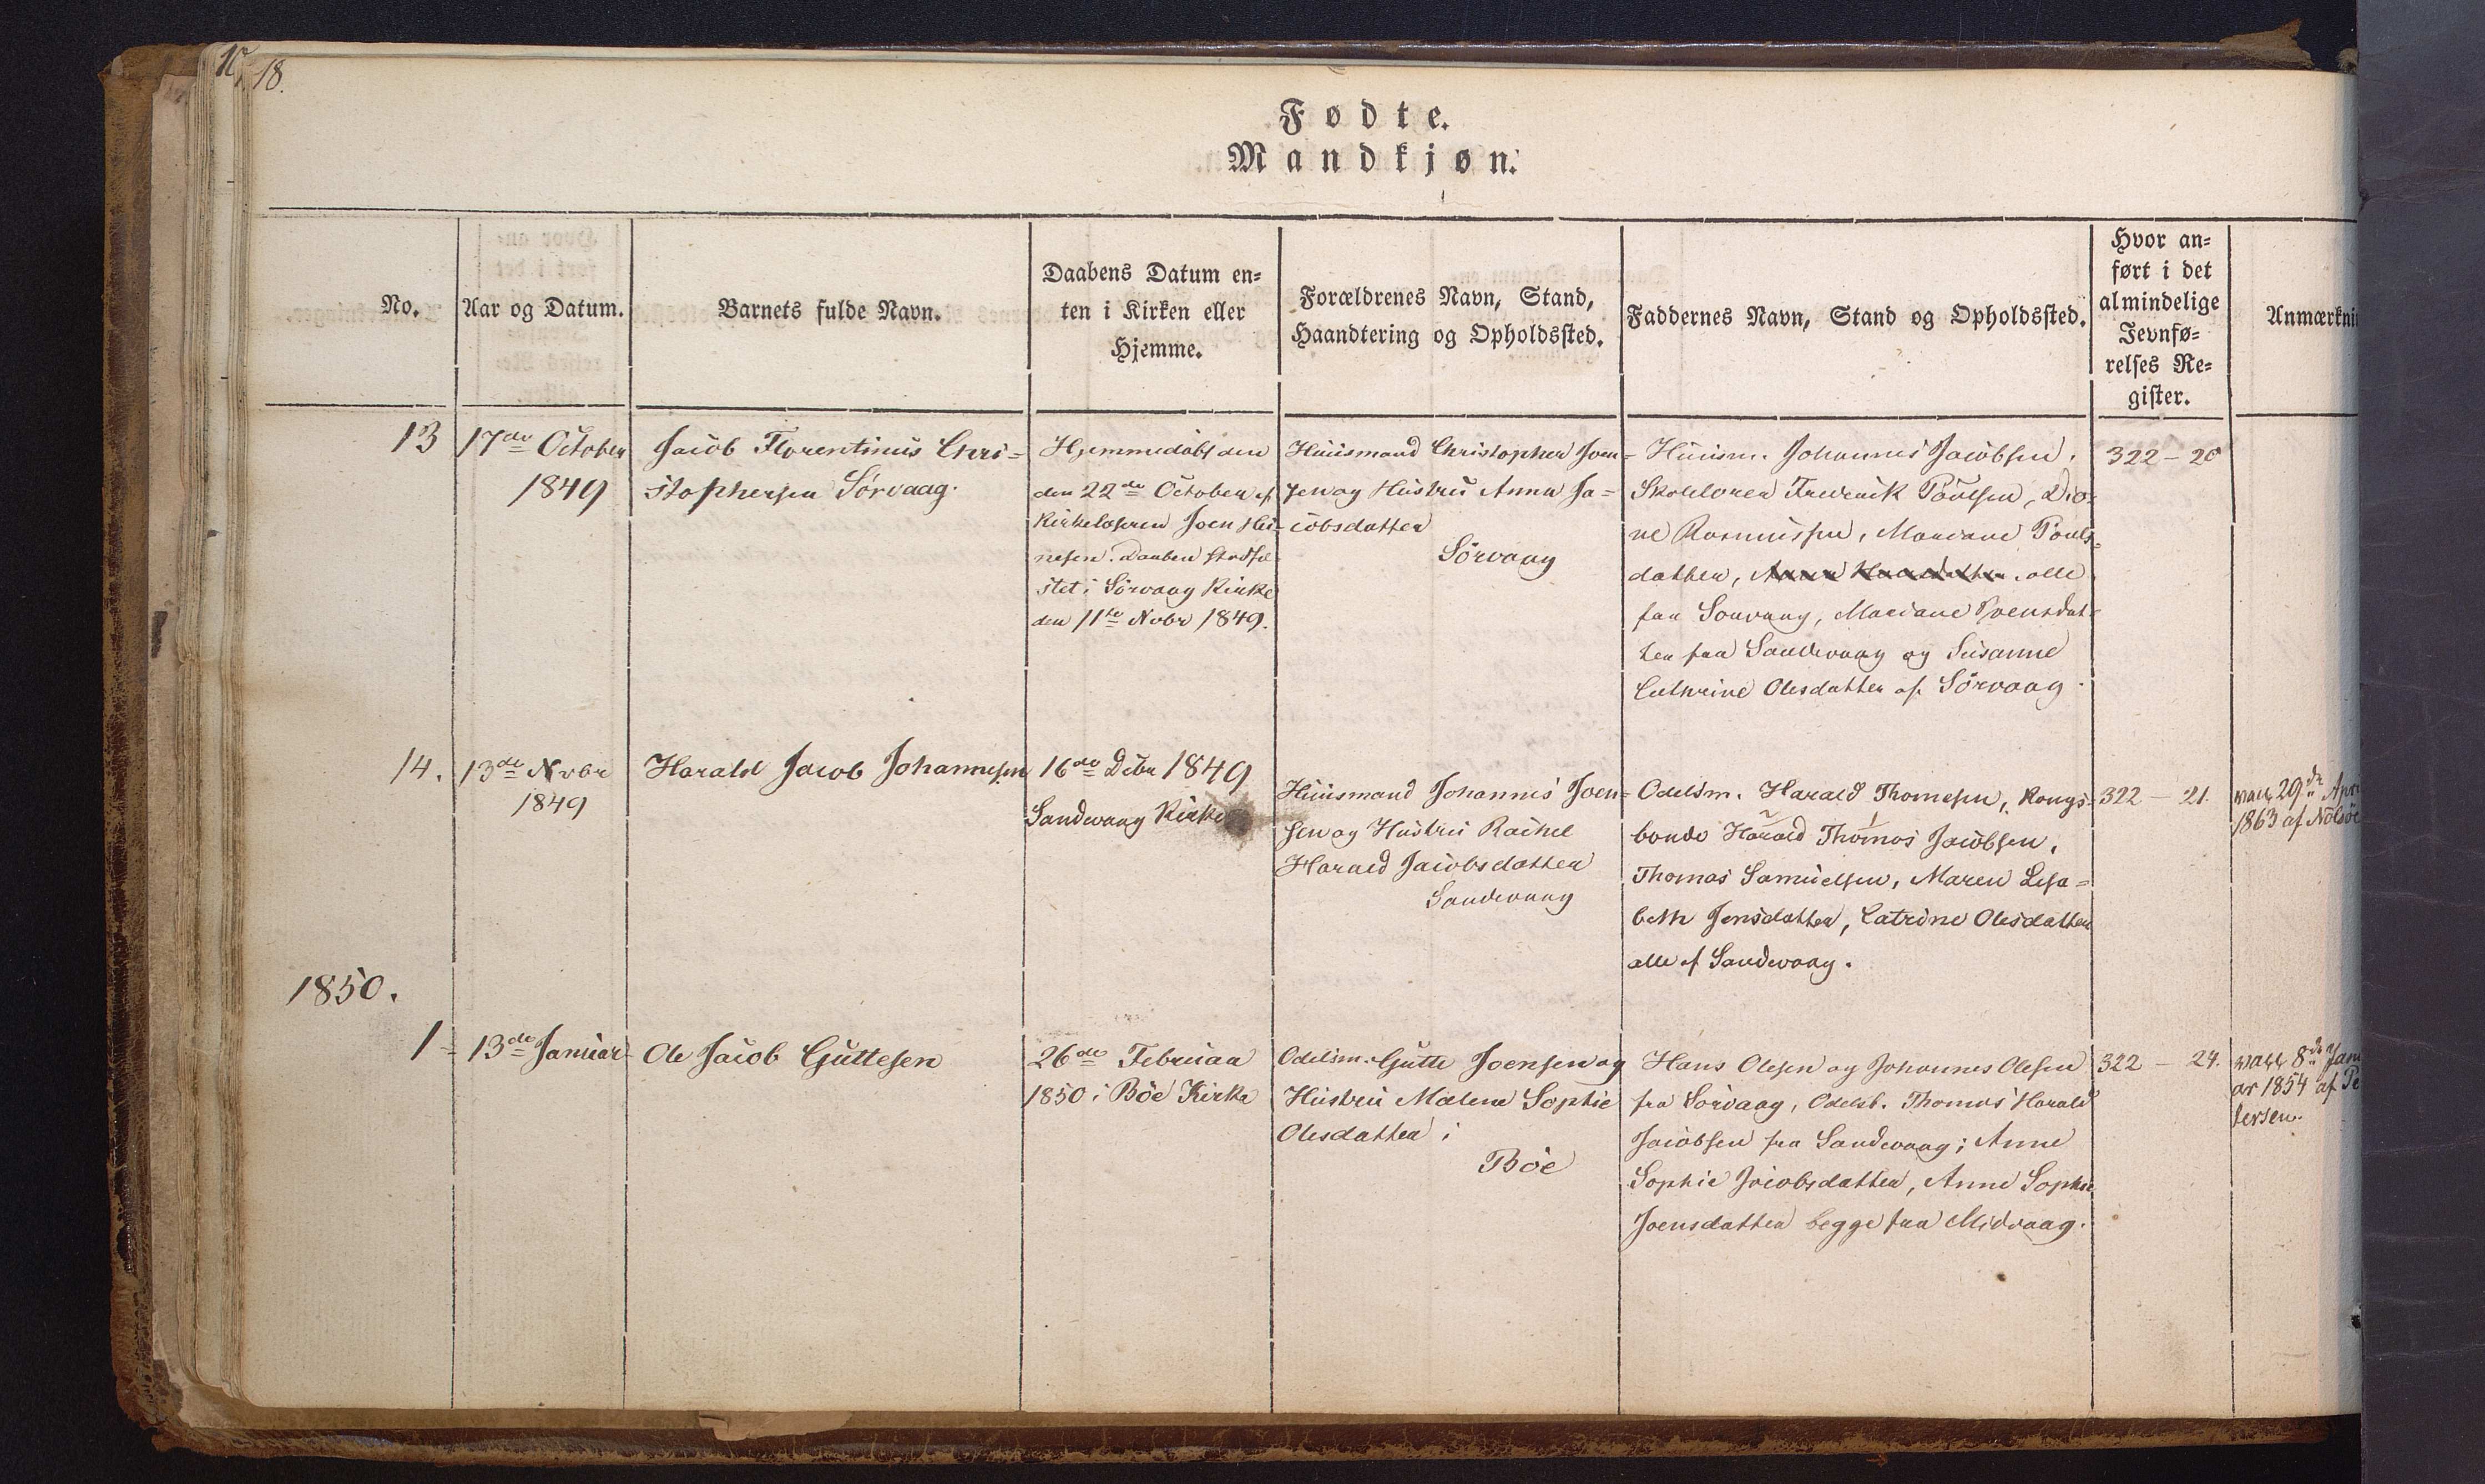 18.
Fødte.
Mandkjøn.
No.
Aar og Datum.
Barnets fulde Navn.
Daabens Datum en=
ten i Kirken eller
Hjemme.
Forældrenes Navn, Stand,
Haandtering og Opholdssted.
Faddernes Navn, Stand og Opholdssted.
Hvor an=
ført i det
almindelige
Jevnfø=
relses Re=
gister.
Anmærkni
13
17de October
1849
Jacob Florentinus Chri=
stophersen Sörvaag.
Hjemmedöbt den
den 22de October af
Kirkelæseren Joen Hei=
nesen. Daaben stadfæ
stet i Sörvaag Kirke
den 11te Novbr 1849.
Huusmand Christopher Joen=
sen og Hustru Anna Ja=
cobsdatter
Sörvaag
Huusm. Johannes Jacobsen,
Skolelærer Frederik Poulsen,
Rasmussen, Mariane Pouls=
datter, alle
fra Sörvaag, Mariane
ter fra Sandevaag og Susanne
Cathrine Olesdatter af Sörvaag.
322 - 20
14.
13de Novbr
1849
Harald Jacob Johannesen
16de Debr 1849
Sandevaag Kirke
Huusmand Johannes Joen=
sen og Hustru Rachel
Harald Jacobsdatter
Sandevaag
Odelsm. Harald Thomesen, Kongs=
bonde Harald Thomas Jacobsen,
Thomas Samuelsen, Maren Lisa=
beth Jensdatter, Catrine Olesdatter
alle af Sandevaag.
322 - 21.
vacc. 29de Apri
1863 af Nölsöe
1850.
1
13de Januar
Ole Jacob Guttesen
26de Februar
1850 i Böe Kirke
Odelsm. Gutte Joensen og
Hustru Malene Sophie
Olesdatter i
Böe
Hans Olesen og Johannes Olesen
fra Sörvaag, Odelsb. Thomas Harald
Jacobsen fra Sandevaag; Anne
Sophie Jacobsdatter, Anne Sophie
Joensdatter begge fra Midvaag.
322 - 24.
vacc 8de Janu
ar 1854 af Pe
tersen.